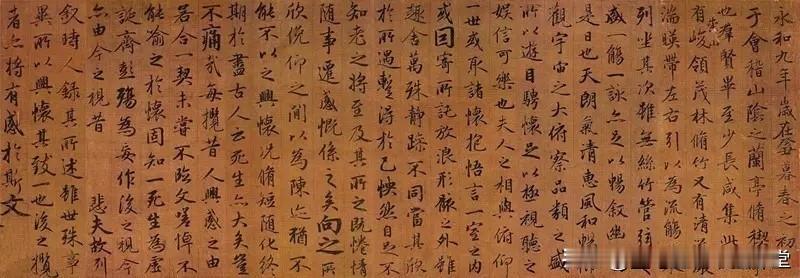 永和九年歲在癸暮春之初
于會稽山陰之蘭亭脩稧
也羣賢畢至少長咸集此
有崇山峻領茂林脩竹又有清流
湍暎帶左右引以為流觴
列坐其次雖無絲竹管弦
盛一觴一詠亦足以暢叙幽
是日也天朗氣清惠風和暢
觀宇宙之大俯察品類之盛
所以遊目騁懷足以極視聽之
娛信可樂也夫人之相與俯仰
一世或取諸懷抱悟言一室之內
或因寄所託放浪形骸之外雖
趣舍萬殊靜躁不同當其欣
於所遇蹔得於己怏然自足不
知老之將至及其所之既惓情
隨事遷感慨係之矣向之所
欣俛仰之閒以為陳迹猶不
能不以之興懷況脩短隨化終
期於盡古人云死生亦大矣豈
不痛哉每攬昔人興感之由
若合一契未嘗不臨文嗟悼不
能喻之於懷固知一死生為虛
誕齊彭殤為妄作後之視今
亦由今之視昔 悲夫故列
叙時人錄其所述雖世殊事
異所以興懷其致一也後之攬
者亦將有感於斯文